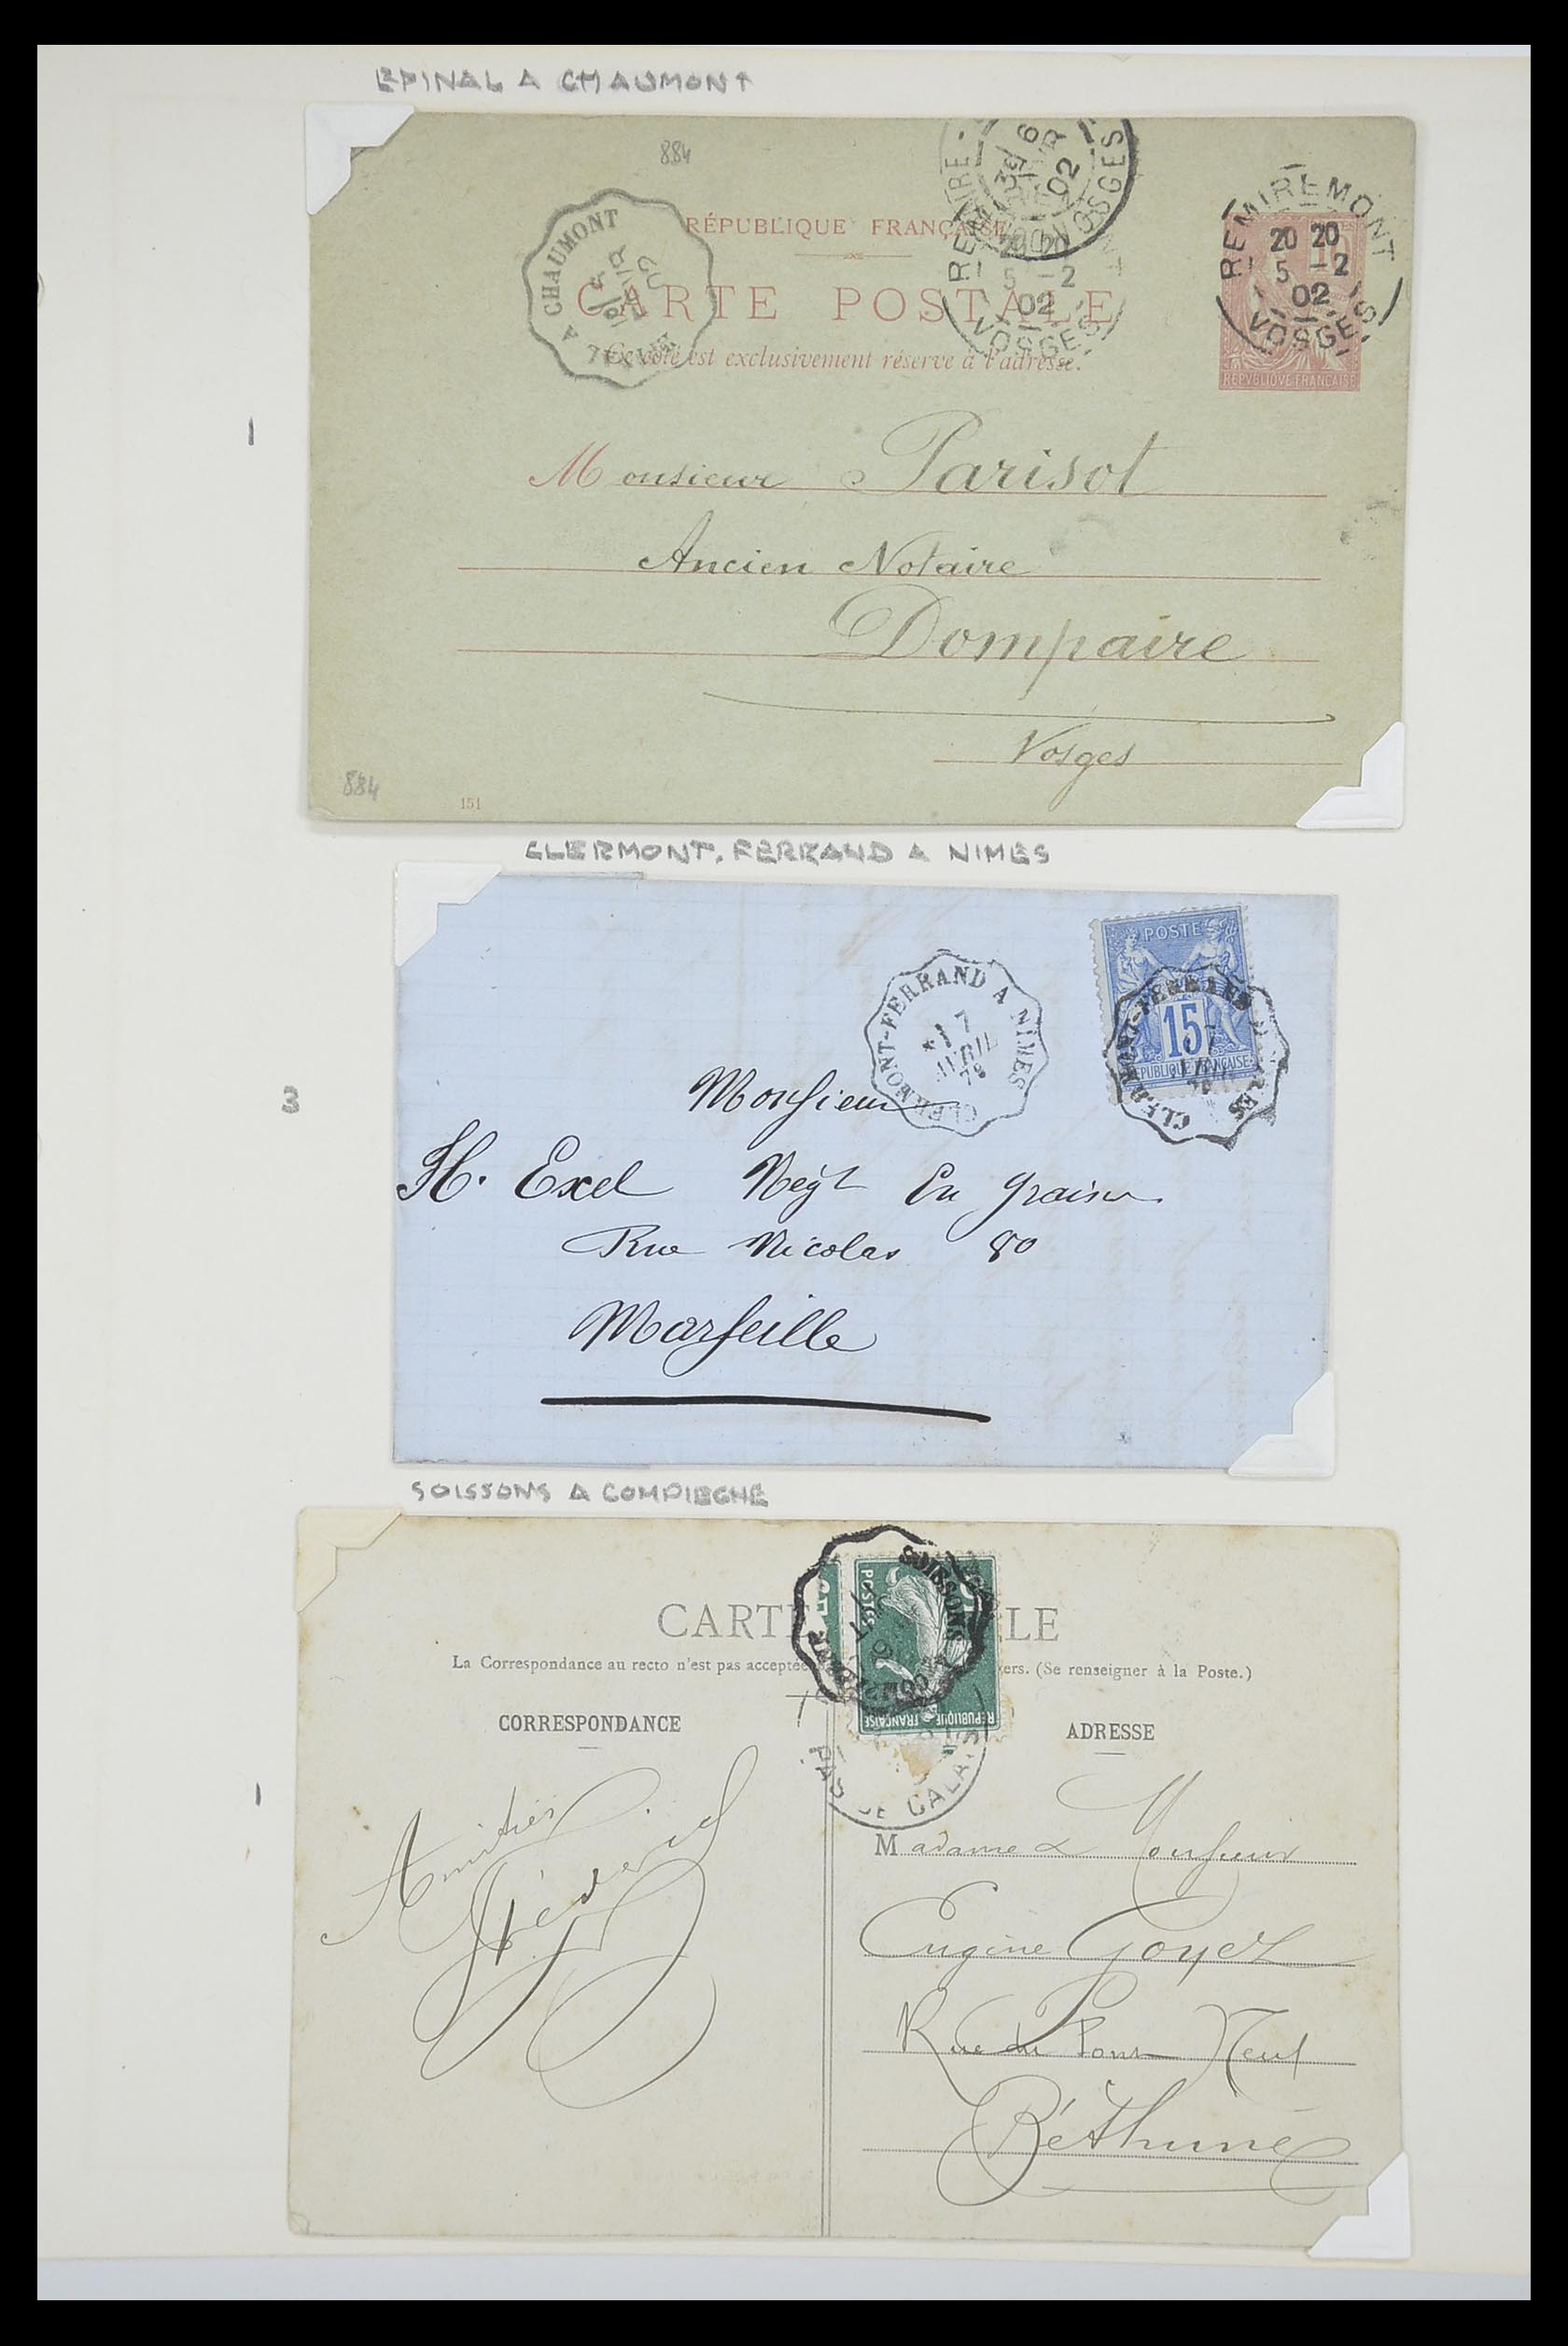 EPINAL A CHAUMONT
884
RÉPUBLIQUE FRANÇAISE
CARTE POSTALE
Ce côté est exclusivement réservé à l'adresse.
A CHAUMONT
6
02
VOSGES
REMIREMONT
20 20
5 -2
02
VOSGES
REMIREMONT
20 20
5 -2
02
VOSGES
10
REPVBLIQVE FRANÇAISE
1
Monsieur Parisot
Ancien Notaire
Dompaire
Vosges
884
151
CLERMONT. FERRAND A NIMES
POSTE
15
REPUBLIQUE FRANÇAISE
CLERMONT-FERRAND A NIMES
7
AVRIL
CLERMONT-FERRAND A NIMES
3
Monsieur
H. Exel Negt En graines
Rue Nicolas 80
Marseille
SOISSONS A COMPIEGNE
SOISSONS A COM
POSTES
REPUBLIQUE FRANÇAISE
CARTE LE
La Correspondance au recto n'est pas acceptée ers. (Se renseigner à la Poste.)
CORRESPONDANCE
ADRESSE
PAS DE CALAIS
1
Amitiés
Madame & Monsieur
Eugène Goyet
Rue du Pont Neuf
Béthune